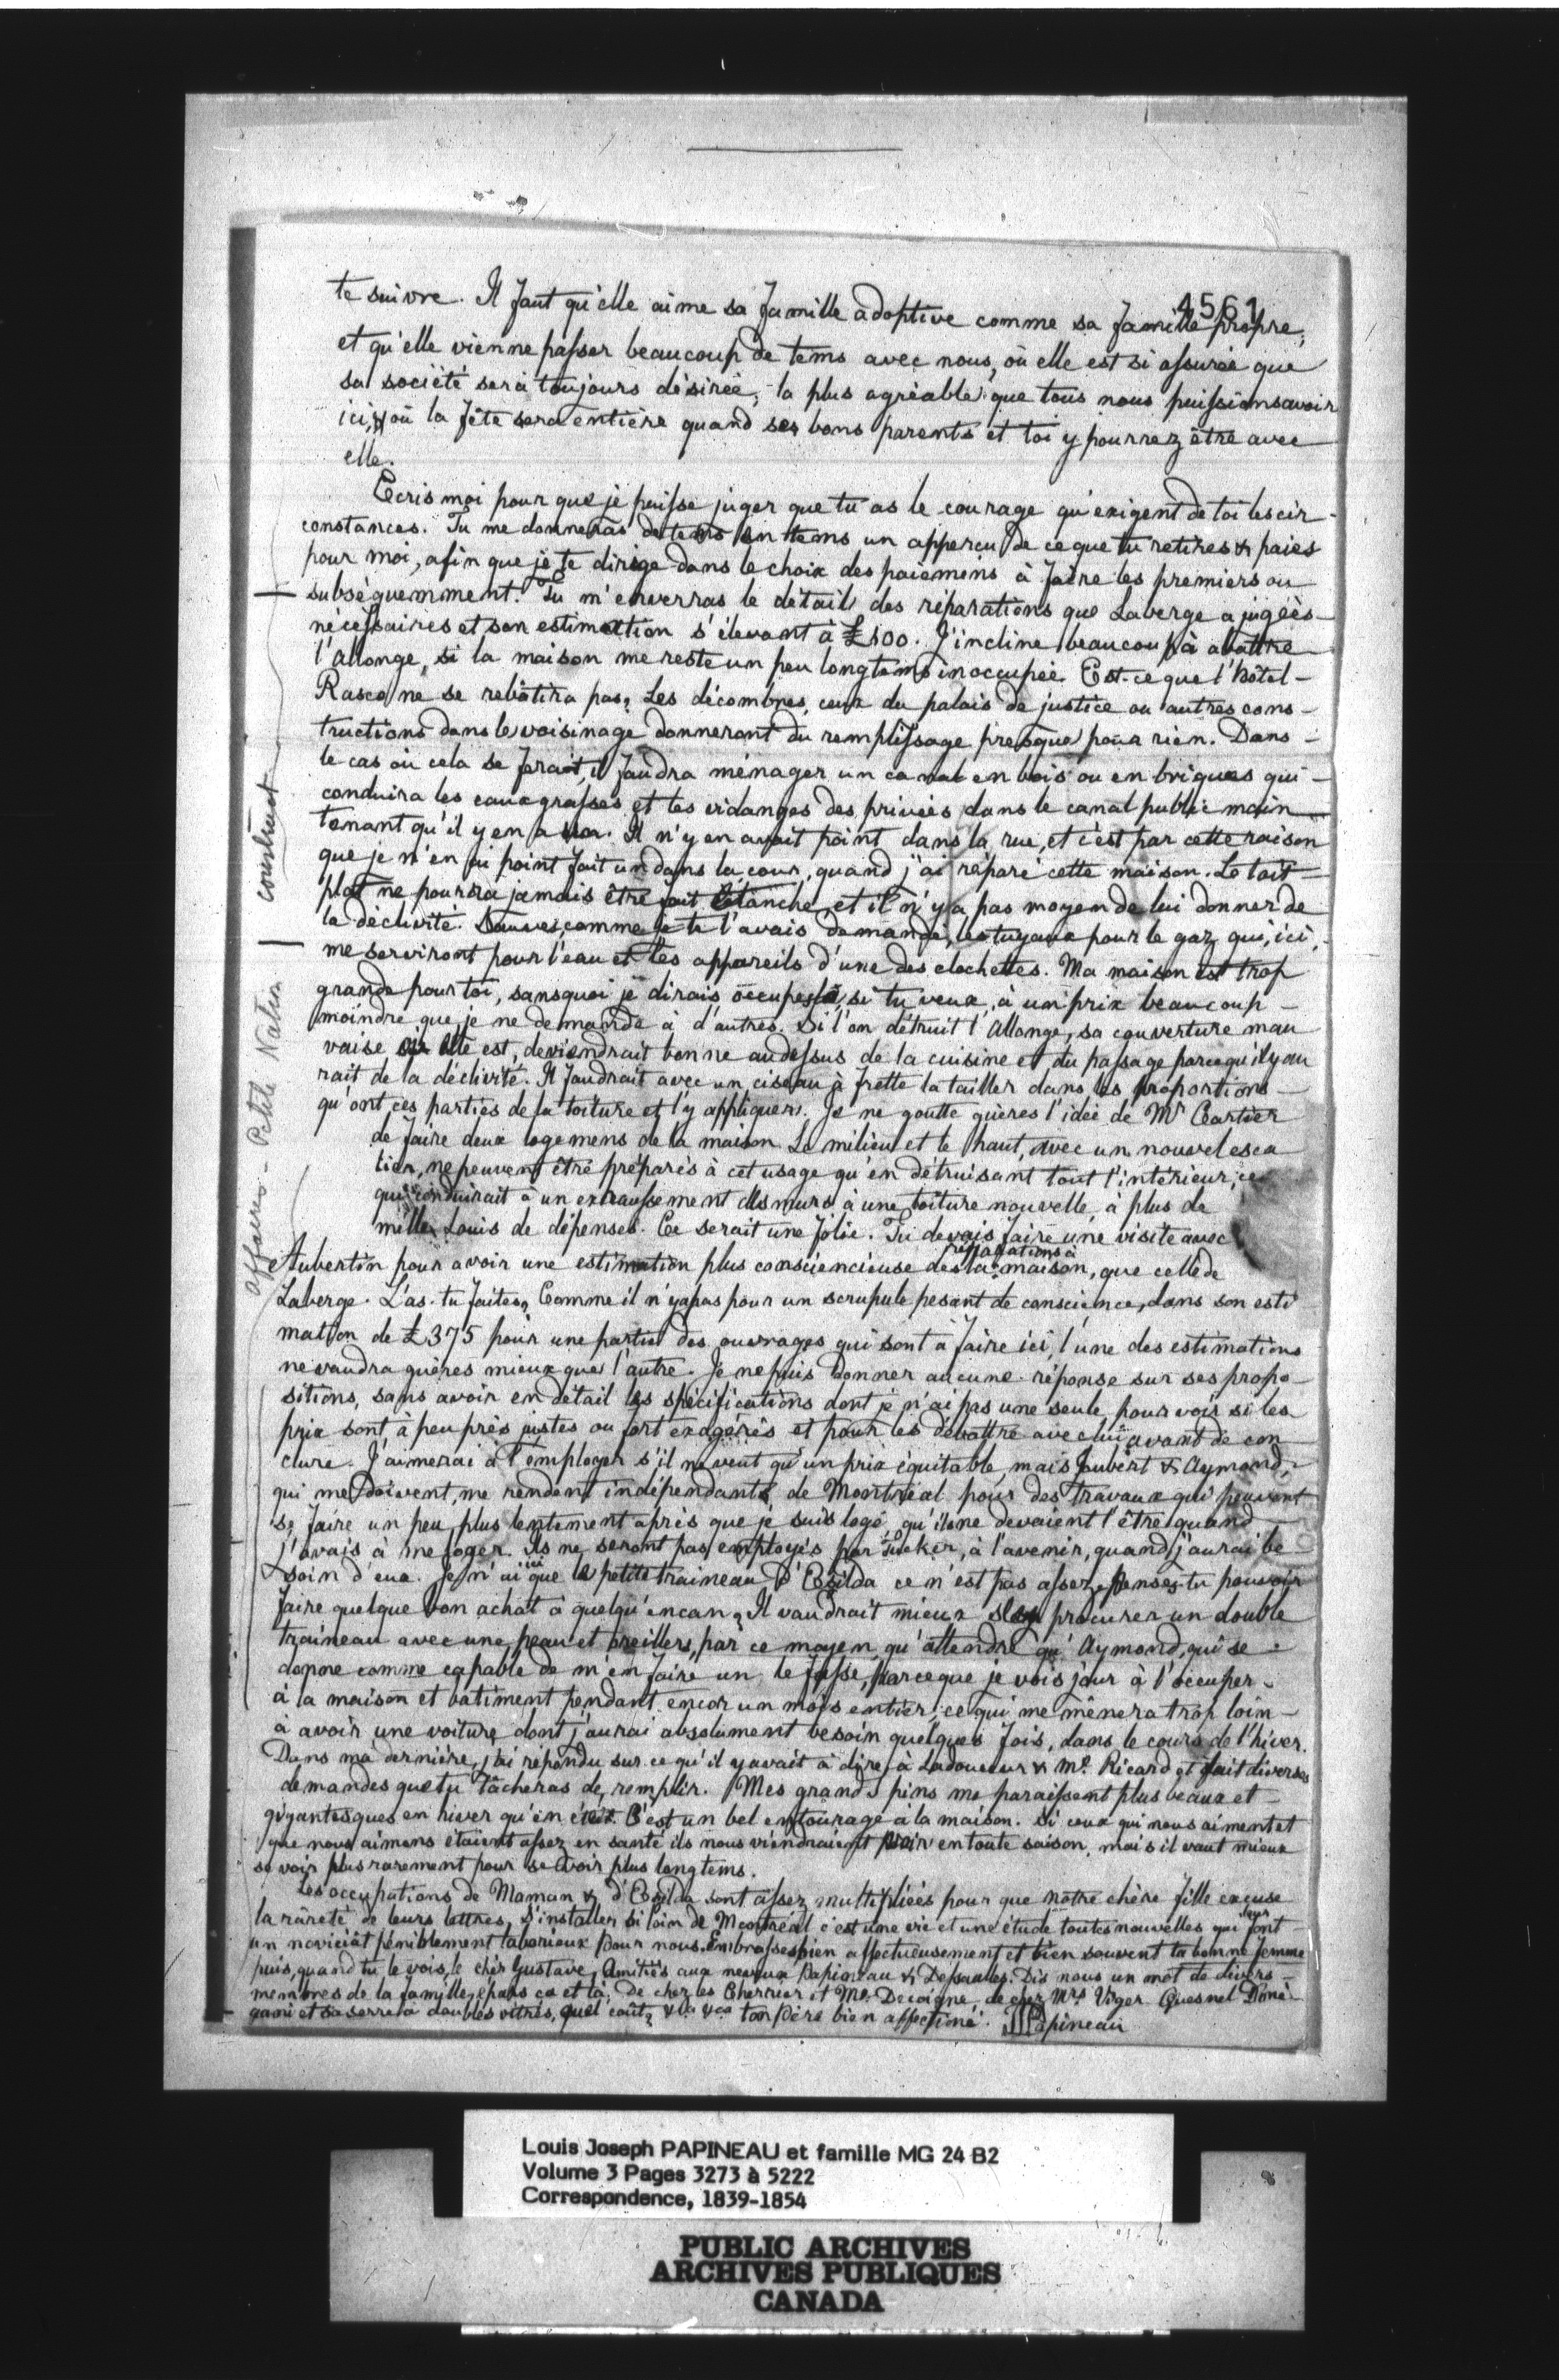 4561
te suivre. Il faut qu'elle aime sa famille adoptive comme sa famille propre,
et qu'elle vienne passer beaucoup de tems avec nous, où elle est si assurée que
sa société sera toujours désirée, la plus agréable que tous nous puissions avoir
ici, & où la fête sera entière quand ses bons parents et toi y pourrez être avec
elle.
Ecris moi pour que je puisse juger que tu as le courage qu'exigent de toi les cir-
constances. Tu me donneras de tems en tems un apperçu de ce que tu retires & paies
pour moi, afin que je te dirige dans le choix des paiemens à faire les premiers ou
subséquemment. Tu m'enverras le détail des réparations que Laberge a jugées
nécessaires et son estimation s'élevant à £100. J'incline beaucoup à abattre
l'allonge, si la maison me reste un peu longtems inoccupée. Est-ce que l'hôtel-
Rasco ne se rebâtira pas? Les décombres, ceux du palais de justice ou autres cons-
tructions dans le voisinage donneront du remplissage presque pour rien. Dans
le cas où cela se ferait, il faudra ménager un canal en bois ou en briques qui
conduira les eaux grasses et les vidanges des privées dans le canal public main
tenant qu'il y en a un. Il n'y en avait point dans la rue, et c'est par cette raison
que je n'en ai point fait un dans la cour, quand j'ai réparé cette maison. Le toit
plat ne pourra jamais être fait étanche, et il n'y a pas moyen de lui donner de
la déclivité. Sauves, comme je te l'avais demandé, les tuyaux pour le gaz qui, ici,
me serviront pour l'eau et les appareils d'une des clochettes. Ma maison est trop
grande pour toi, sans quoi je dirais occupes la, si tu veux, à un prix beaucoup
moindre que je ne demande à d'autres. Si l'on détruit l'allonge, sa couverture mau
vaise où elle est, deviendrait bonne au dessus de la cuisine et du passage parcequ'il y au
rait de la déclivité. Il faudrait avec un ciseau à frette la tailler dans les proportions
qu'ont ces parties de la toiture et l'y appliquer. Je ne goutte guères l'idée de Mr Cartier
de faire deux logemens de la maison. Le milieu et le haut, avec un nouvel esca
lier, ne peuvent être préparés à cet usage qu'en détruisant tout l'intérieur, ce
qui conduirait à un exhaussement des murs à une toiture nouvelle, à plus de
mille Louis de dépenses. Ce serait une folie. Tu devais faire une visite avec
réparations à
Aubertin pour avoir une estimation plus consciencieuse des la maison, que celle de
Laberge. L'as-tu faite? Comme il n'y a pas pour un scrupule pesant de conscience, dans son esti
mation de £375 pour une partie des ouvrages qui sont à faire ici, l'une des estimations
ne vaudra guères mieux que l'autre. Je ne puis donner aucune réponse sur ses propo-
sitions, sans avoir en détail les spécifications dont je n'ai pas une seule pour voir si les
prix sont à peu près justes ou fort exagérés et pour les débattre avec lui avant de con
clure. J'aimerai à l'employer s'il ne veut qu'un prix équitable, mais Joubert & Aymond,
qui me doivent, me rendent indépendants de Montréal pour des travaux qui peuvent
se faire un peu plus lentement après que je suis logé qu'ils ne devaient l'être quand
j'avais à me loger. Ils ne seront pas employés par Tucker, à l'avenir, quand j'aurai be
ici
soin d'eux. Je n'ai que le petit traineau d'Ezilda ce n'est pas assez. Penses-tu pouvoir
faire quelque bon achat à quelqu'encan? Il vaudrait mieux procurer un double
traineau avec une peau et oreillers, par ce moyen, qu'attendre qu'Aymond, qui se
donne comme capable de m'en faire un le fasse, parceque je vois jour à l'occuper
à la maison et bâtiment pendant encor un mois entier, ce qui me mènera trop loin
à avoir une voiture dont j'aurai absolument besoin quelques fois, dans le cours de l'hiver.
Dans ma dernière, j'ai répondu sur ce qu'il y avait à dire à Ladouceur & Mr Ricard et fait diverses
demandes que tu tâcheras de remplir. Mes grands pins me paraissent plus beaux et
gigantesques en hiver qu'en été. C'est un bel entourage à la maison. Si ceux qui nous aiment et
que nous aimons étaient assez en santé ils nous viendraient voir en toute saison, mais il vaut mieux
se voir plus rarement pour se voir plus longtems.
Les occupations de Maman & d'Ezilda sont assez multipliées pour que notre chère fille excuse
la rareté de leurs lettres, S'installer si loin de Montréal c'est une vie et une étude toutes nouvelles qui leur font
un noviciat péniblement laborieux pour nous. Embrasses bien affectueusement et bien souvent ta bonne femme
puis, quand tu le vois, le chèr Gustave, Amitiés aux neveux Papineau & Dessaulles. Dis nous un mot de divers
membres de la famille, épars ça et là, de chez les Cherrier et Me Decoigne, de chez Mrs Viger Quesnel Doné-
gani et sa serre à doubles vitres, quel cout? &ca &ca ton Père bien affectioné. LJPapineau
affaires - Petite Nation | construct
Louis Joseph PAPINEAU et famille MG 24 B2
Volume 3 Pages 3273 à 5222
Correspondence, 1839-1854
PUBLIC ARCHIVES
ARCHIVES PUBLIQUES
CANADA